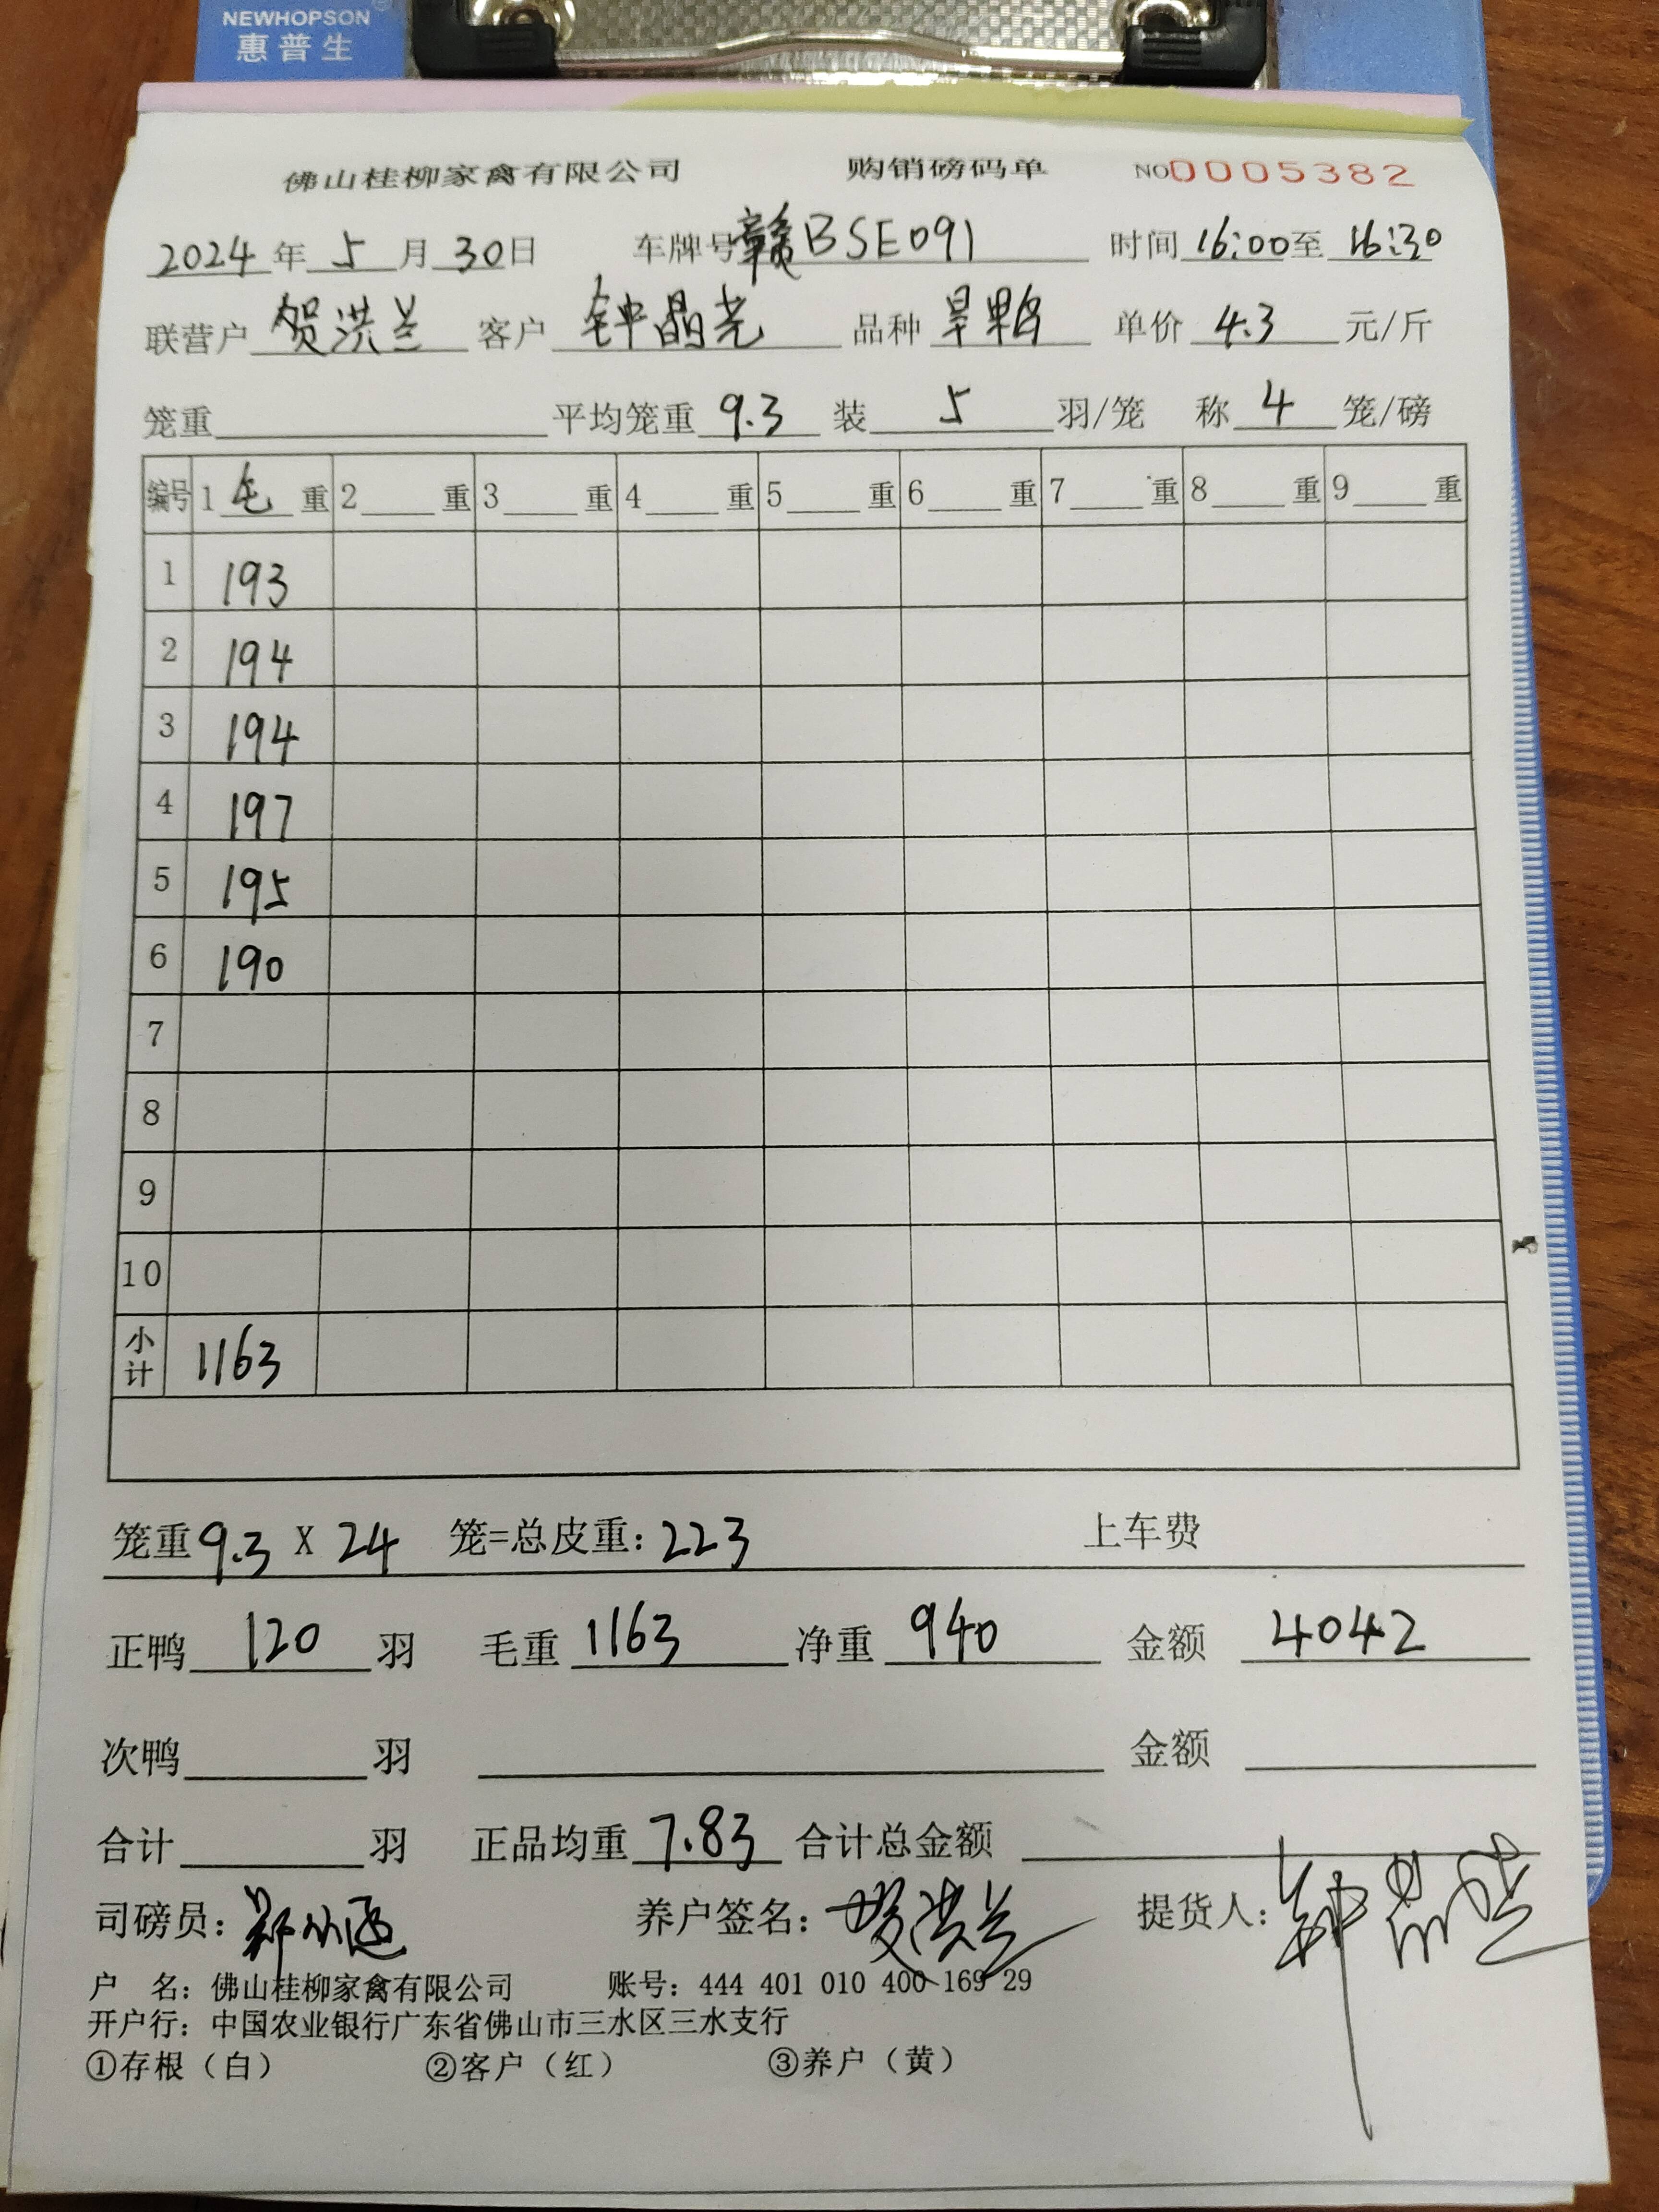 NEWHOPSON
惠普生
佛山桂柳家禽有限公司 购销磅码单 NO0005382
2024年5月30日 车牌号赣BSE091 时间16:00至16:30
联营户 贺洪兰 客户 钟晶尧 品种 旱鸭 单价 4.3 元/斤
笼重 平均笼重 9.3 装 5 羽/笼 称 4 笼/磅
编号 1 毛 重 2 重 3 重 4 重 5 重 6 重 7 重 8 重 9 重
1 193
2 194
3 194
4 197
5 195
6 190
7
8
9
10
小计 1163
笼重 9.3 X 24 笼=总皮重:223 上车费
正鸭 120 羽 毛重 1163 净重 940 金额 4042
次鸭 羽 金额
合计 羽 正品均重 7.83 合计总金额
司磅员: 养户签名:贺洪兰 提货人:钟晶尧
户 名:佛山桂柳家禽有限公司 账号:444 401 010 400 169 29
开户行:中国农业银行广东省佛山市三水区三水支行
①存根(白) ②客户(红) ③养户(黄)